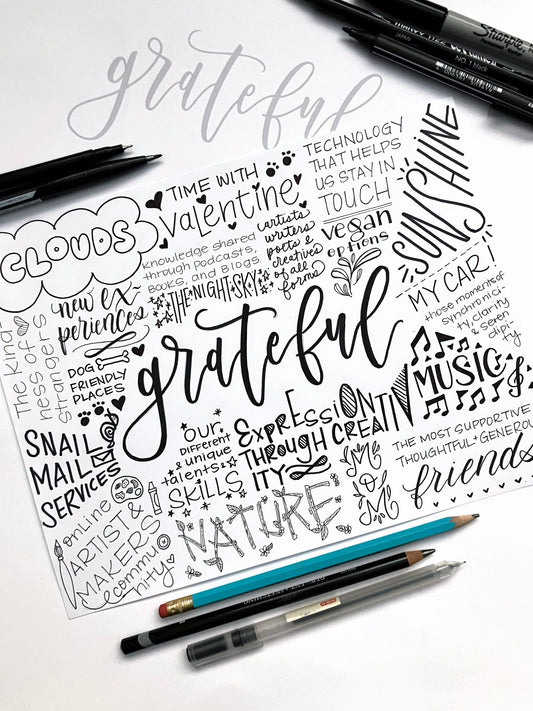 grateful
Sharpie
MARVY
JAPAN
NO. 1 black
TIME WITH
valentine
TECHNOLOGY
THAT HELPS
US STAY IN
TOUCH
SUNSHINE
CLOUDS
knowledge shared
through podcasts,
BOOKS, and BLOGS
artists
writers
poets &
creatives
of all
forms
vegan
options
MY CAR!
new ex-
periences
THE NIGHT SKY
those moments of
synchronici-
ty, clarity
& seren
dipi-
ty
The kind-
ness of
strangers
DOG
FRIENDLY
PLACES
grateful
MUSIC
SNAIL
MAIL
SERVICES
OUR
DIFFERENT
& unique
talents &
SKILLS
EXPRESSION
THROUGH CREATIV
ITY
THE MOST SUPPORTIVE
THOUGHTFUL + GENEROUS
friends
MY
MOM
online
ARTIST &
MAKERS
commu
nity
NATURE